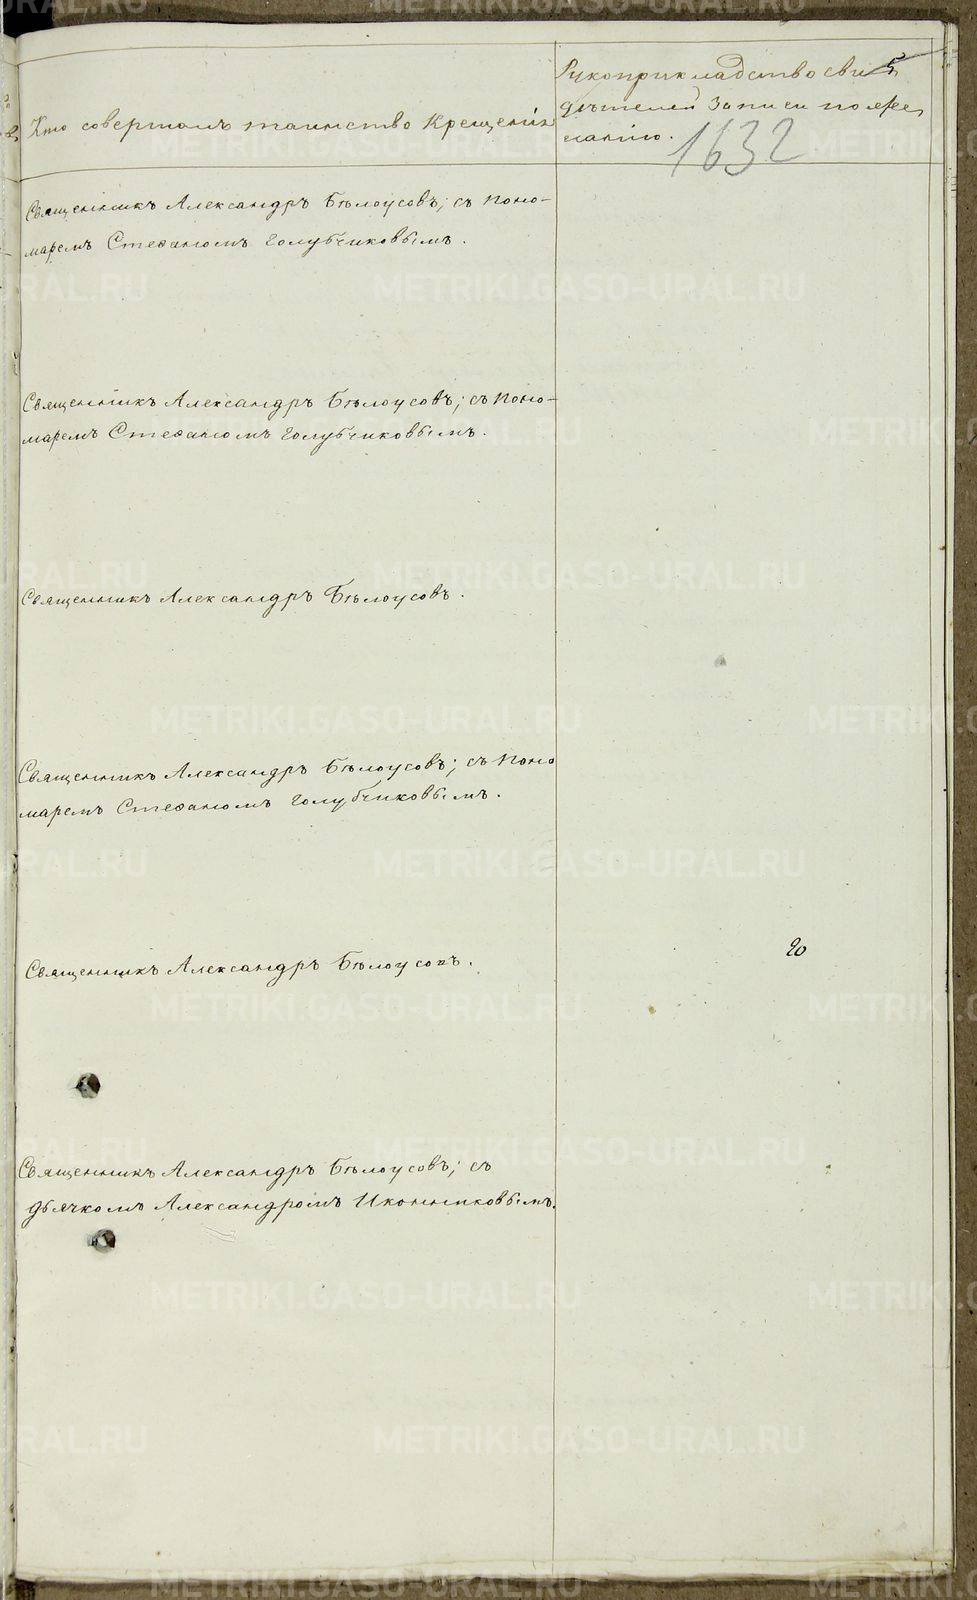 Кто совершалъ таинство Крещенія
Рукоприкладство сви
дѣтелей записи по же
ланію.
5
1632
Священникъ Александръ Бѣлоусовъ; съ поно-
маремъ Стефаномъ Голубчиковымъ.
Священникъ Александръ Бѣлоусовъ; съ поно-
маремъ Стефаномъ Голубчиковымъ.
Священникъ Александръ Бѣлоусовъ.
Священникъ Александръ Бѣлоусовъ; съ поно
маремъ Стефаномъ Голубчиковымъ.
Священникъ Александръ Бѣлоусовъ.
20
Священникъ Александръ Бѣлоусовъ; съ
дьячкомъ Александромъ Иконниковымъ.
METRIKI.GASO-URAL.RU